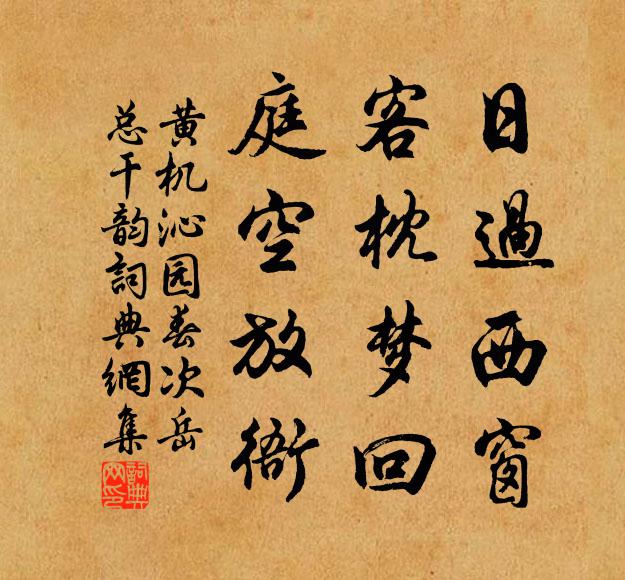 日過西窗
客枕梦回
庭空放衙
黄机沁园春次岳
总干韵詞典網集
詞典網印